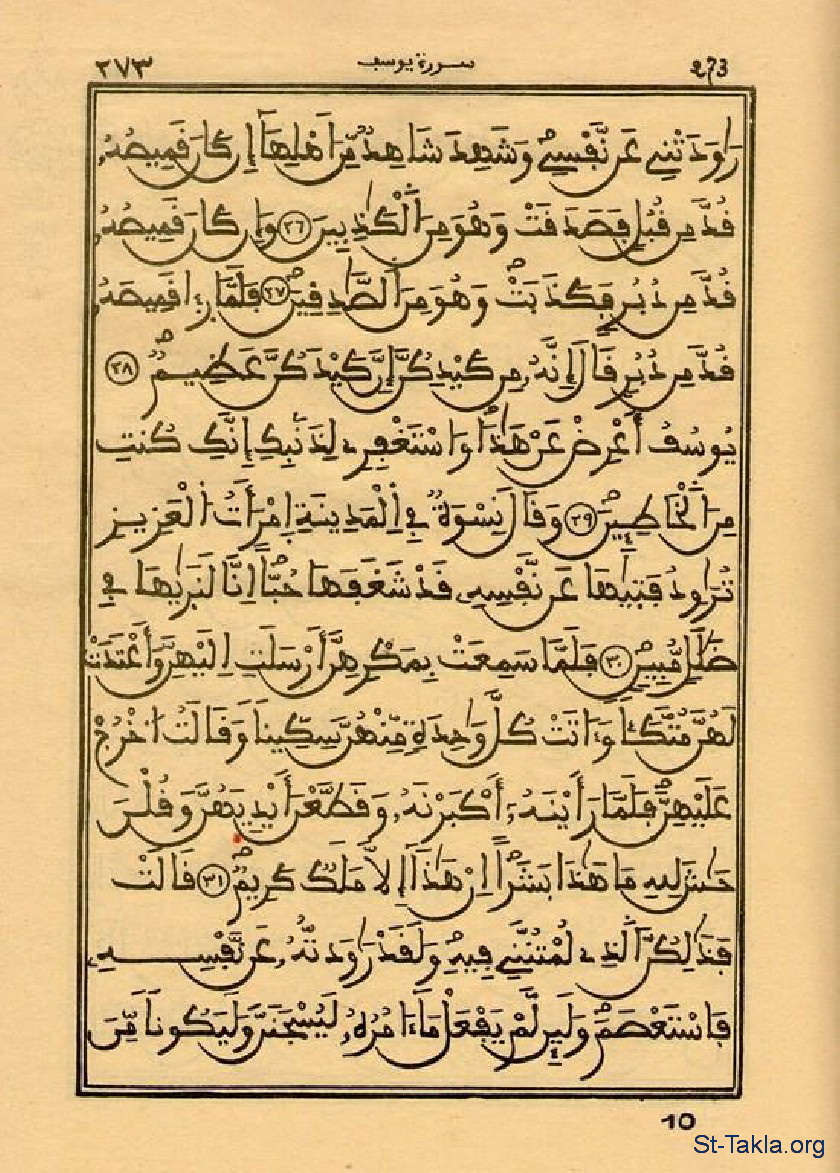 ٢٧٣ سورة يوسف 273
رَٰوَدَتْنِے عَن نَّفْسِے وَشَهِدَ شَاهِدٌ مِّنَ اَهْلِهَآ إِن كَانَ قَمِيصُهُۥ
قُدَّ مِن قُبُلٖ فَصَدَقَتْ وَهُوَ مِنَ اَ۬لْكَٰذِبِينَ ٢٦ وَإِن كَانَ قَمِيصُهُۥ
قُدَّ مِن دُبُرٖ فَكَذَبَتْ وَهُوَ مِنَ اَ۬لصَّٰدِقِينَ ٢٧ فَلَمَّا رَءٖا قَمِيصَهُۥ
قُدَّ مِن دُبُرٖ قَالَ إِنَّهُۥ مِن كَيْدِكُنَّ إِنَّ كَيْدَكُنَّ عَظِيمٌ ٢٨
يُوسُفُ أَعْرِضْ عَنْ هَٰذَا وَاسْتَغْفِرِے لِذَنۢبِكِ إِنَّكِ كُنتِ
مِنَ اَ۬لْخَاطِـِٕينَ ٢٩ وَقَالَ نِسْوَةٌ فِے اِ۬لْمَدِينَةِ اِ۪مْرَأَتُ اُ۬لْعَزِيزِ
تُرَٰوِدُ فَتَيٰهَا عَن نَّفْسِهِۦ قَدْ شَغَفَهَا حُبّاً اِنَّا لَنَرَيٰهَا فِے
ضَلَٰلٖ مُّبِينٖ ٣٠ فَلَمَّا سَمِعَتْ بِمَكْرِهِنَّ أَرْسَلَتِ اِلَيْهِنَّ وَأَعْتَدَتْ
لَهُنَّ مُتَّكَـٔاً وَءَاتَتْ كُلَّ وَٰحِدَةٖ مِّنْهُنَّ سِكِّيناً وَقَالَتُ اُ۟خْرُجْ
عَلَيْهِنَّ فَلَمَّا رَأَيْنَهُۥٓ أَكْبَرْنَهُۥ وَقَطَّعْنَ أَيْدِيَهُنَّ وَقُلْنَ
حَٰشَ لِلهِ مَا هَٰذَا بَشَراً اِنْ هَٰذَآ إِلَّا مَلَكٞ كَرِيمٞ ٣١ قَالَتْ
فَذَٰلِكُنَّ اَ۬لذِے لُمْتُنَّنِے فِيهِ وَلَقَدْ رَٰوَدتُّهُۥ عَن نَّفْسِهِۦ
فَاسْتَعْصَمَ وَلَئِن لَّمْ يَفْعَلْ مَآ ءَامُرُهُۥ لَيُسْجَنَنَّ وَلَيَكُوناً مِّنَ
10
St-Takla.org